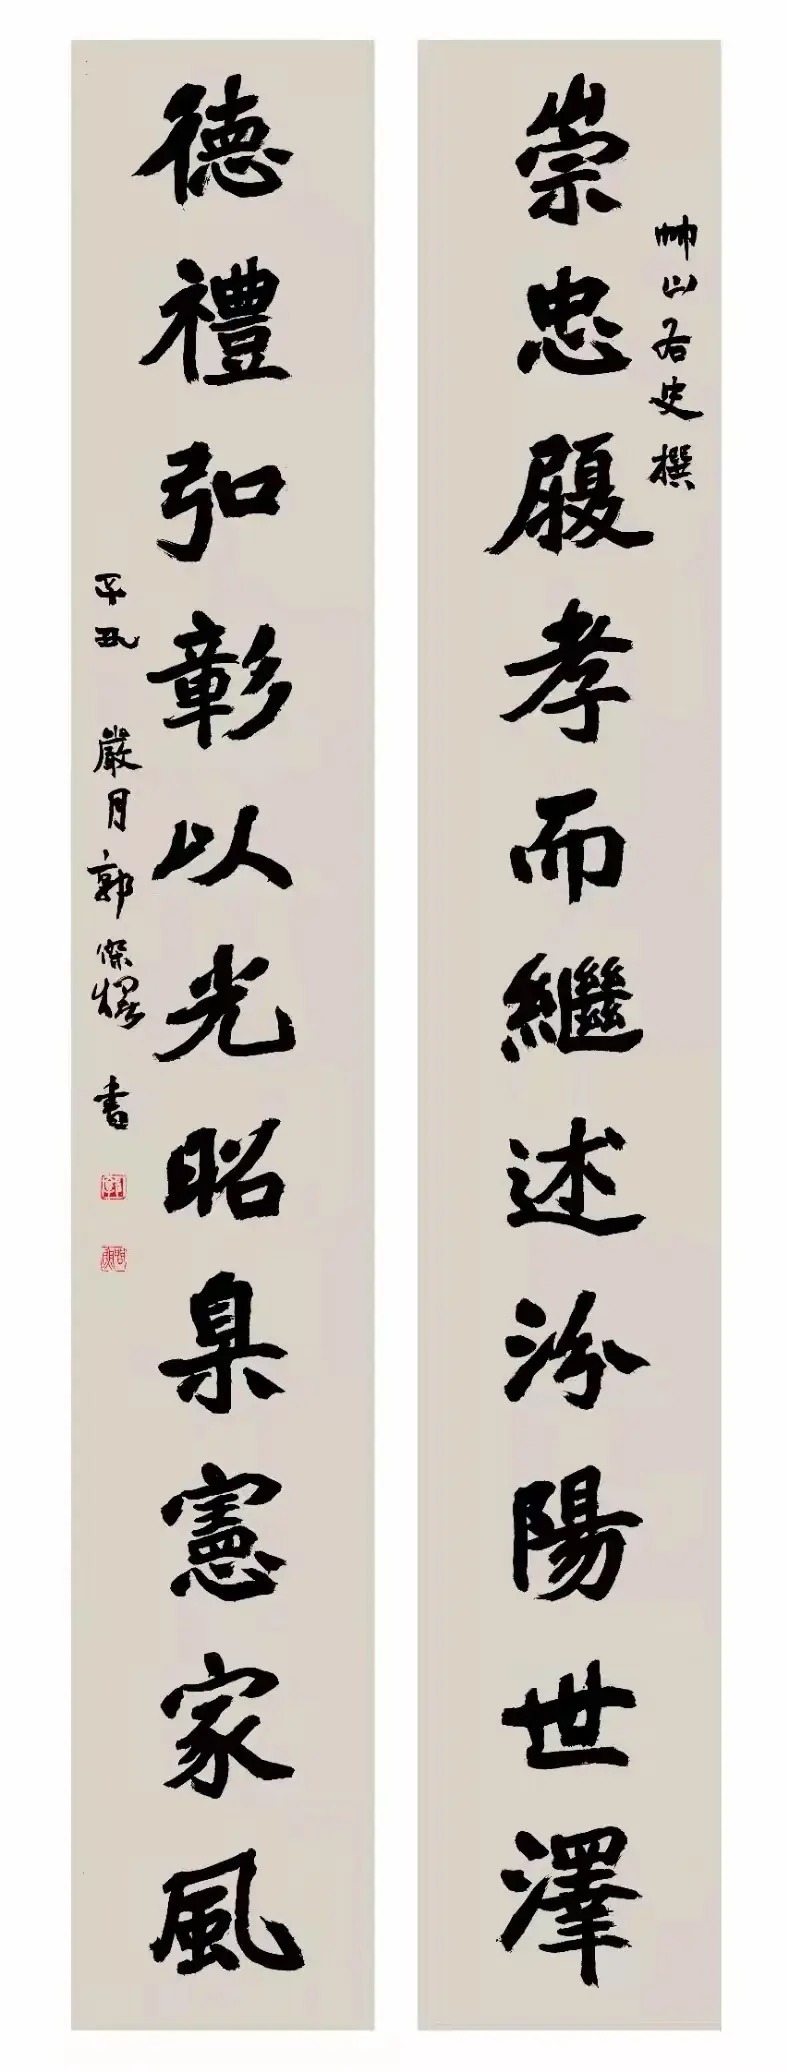 崇忠履孝而繼述汾陽世澤
山右史撰
德禮弘彰以光昭臬憲家風
辛丑 嚴月郭傑燿書